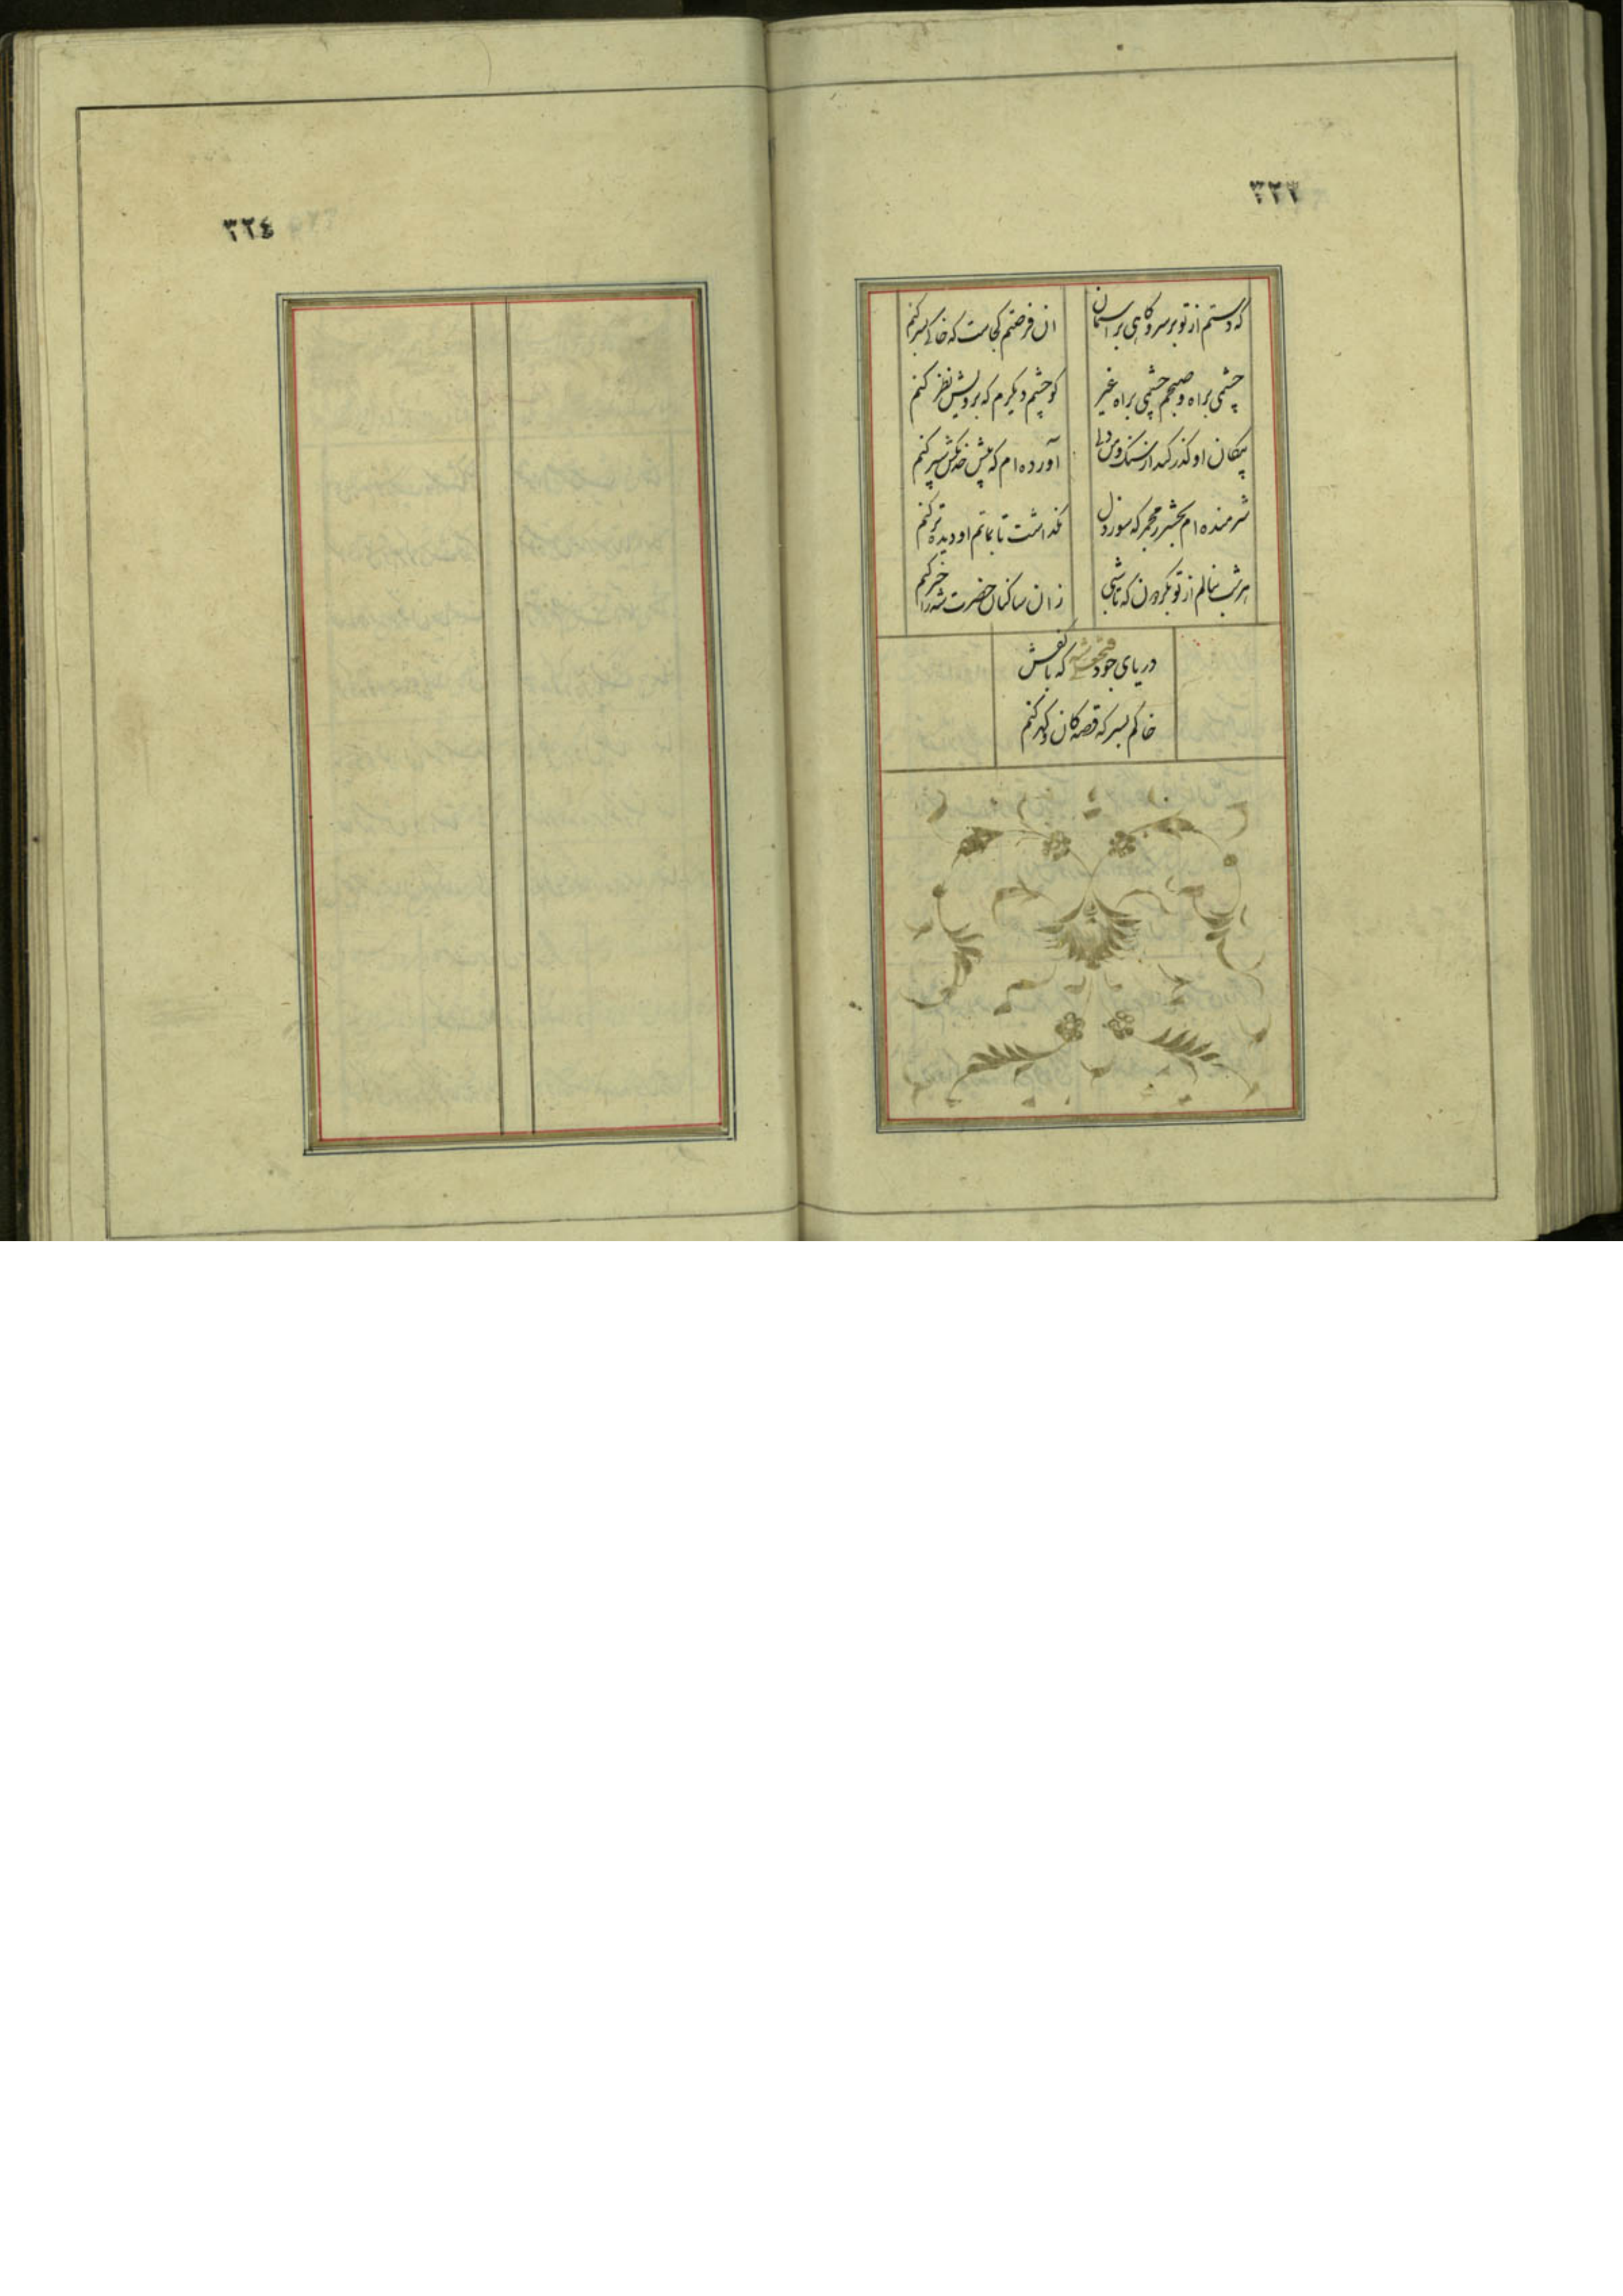 ٣٢٣
که دستم از تو بر سر و کاهی بر آسمان
ان فرصتم کجاست که خاکی بسر کنم
چشمی براه و صبحم چشمی براه غیر
کو چشم دیکرم که برویش نظر کنم
پیکان او کذر کند از سنک و من دلی
آورده ام که پیش خدنکش سپر کنم
شرمنده ام بحشر ز مجمر که سوز دل
نکذاشت تا بماتم او دیده تر کنم
هر شب بنالم از تو بکردون که تا شبی
زان ساکنان حضرت شه را خبر کنم
دریای جود فتحعلیشه که با کفش
خاکم بسر که قصه کان و کهر کنم
٣٢٤